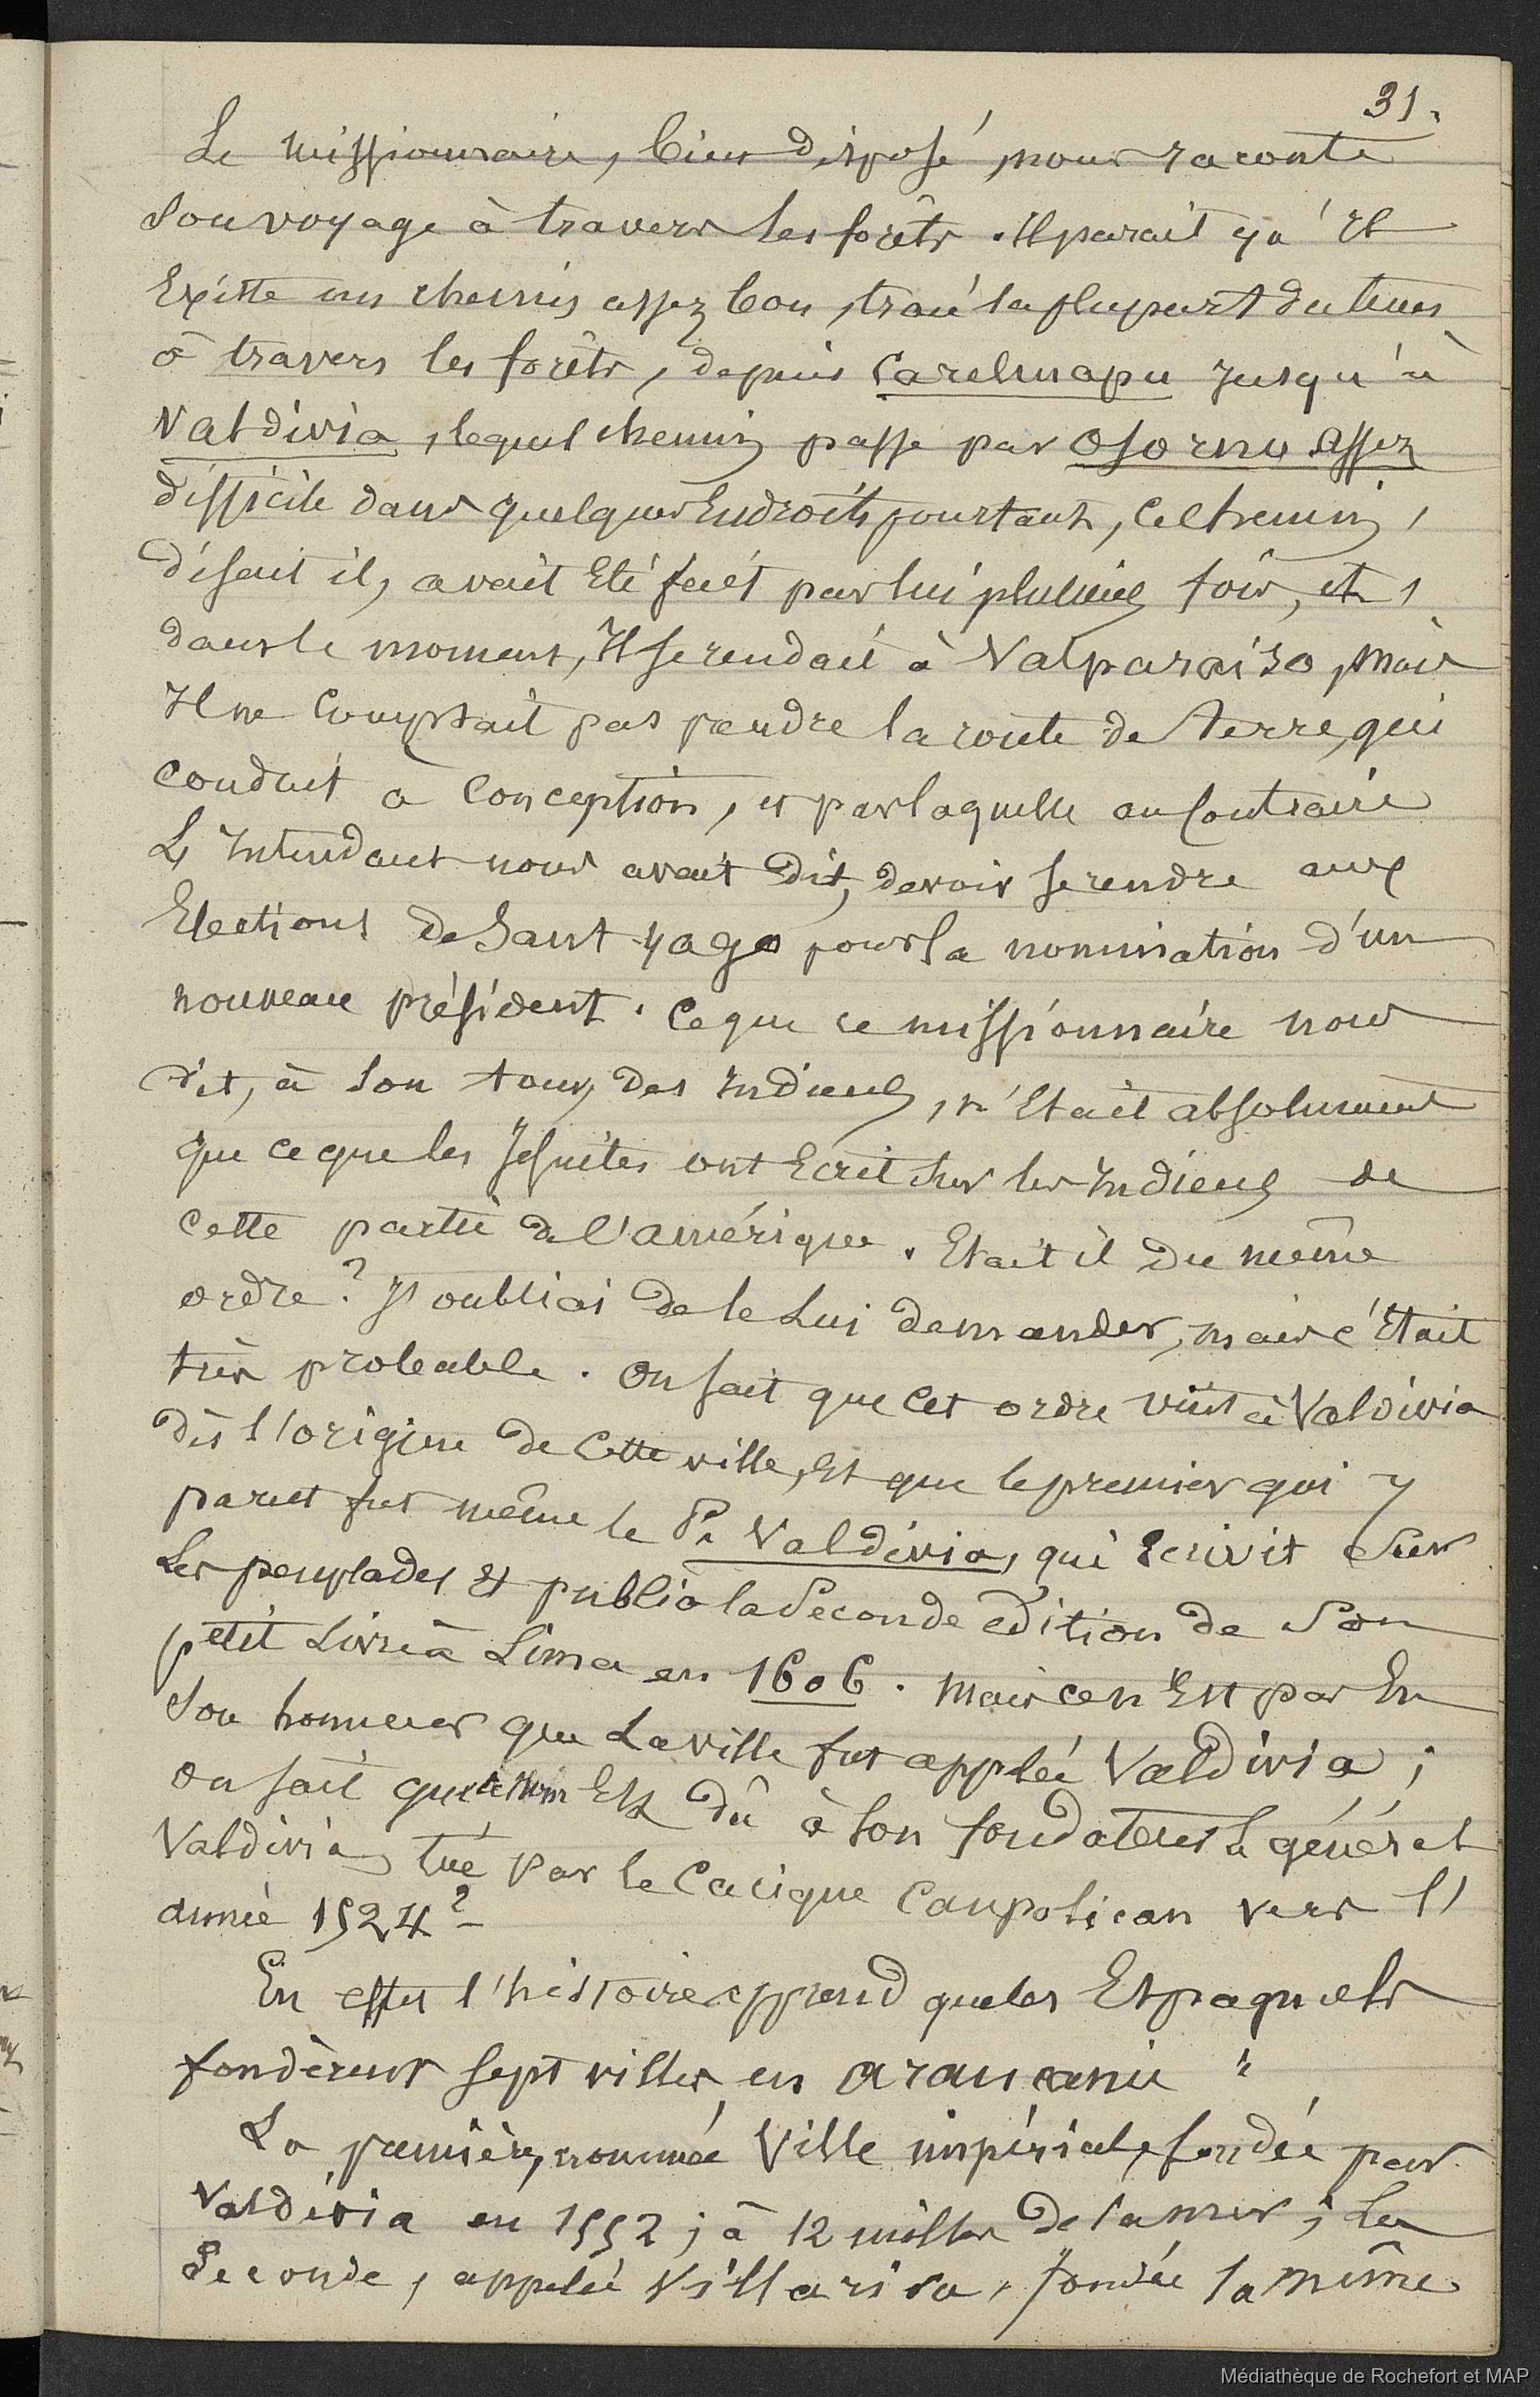 31.
Le missionnaire, bien disposé, nous raconte
son voyage à travers les forêts. Il parait qu'Il
Existe un chemin assez bon, tracé la plupart du tems
à travers les forêts, depuis Carelmapu Jusqu'à
Valdivia, lequel chemin passe par Osorno. Assez
difficile dans quelques Endroits pourtant, ce chemin,
disait il, avait Eté fait par lui plusieurs fois, et,
dans le moment, Il se rendait à Valparaiso, mais
Il ne comptait pas prendre la route de terre, qui
conduit à Conception, et par laquelle au contraire
L'Intendant nous avait dit, devoir se rendre aux
Elections de Sant-yago pour la nomination d'un
nouveau président. Ce que ce missionnaire nous
dit, à son tour, des Indiens, n'Etait absolument
que ce que les Jésuites ont Ecrit sur les Indiens de
cette partie de l'amérique. Etait il du même
ordre? J'oubliai de le Lui demander, mais c'Etait
très probable. On sait que cet ordre vint à Valdivia
dès l'origine de cette ville, Et que le premier qui y
parut fut même le P. Valdivia, qui Ecrivit Sur
Les peuplades Et publia la Seconde édition de Son
petit Livre à Lima en 1606. Mais ce n'Est pas En
Son honneur que La ville fut appelée Valdivia;
on sait que ce nom Est dû à son fondateur le général
Valdivia, tué par le Cacique Caupolican vers l'
année 1524?
En effet l'histoire apprend que les Espagnols
fondèrent sept villes en araucanie:
La première, nommée Ville impériale, fondée par
Valdivia en 1552; à 12 milles de la mer; La
Seconde, appelée Villarica, fondée la même
Médiathèque de Rochefort et MAP